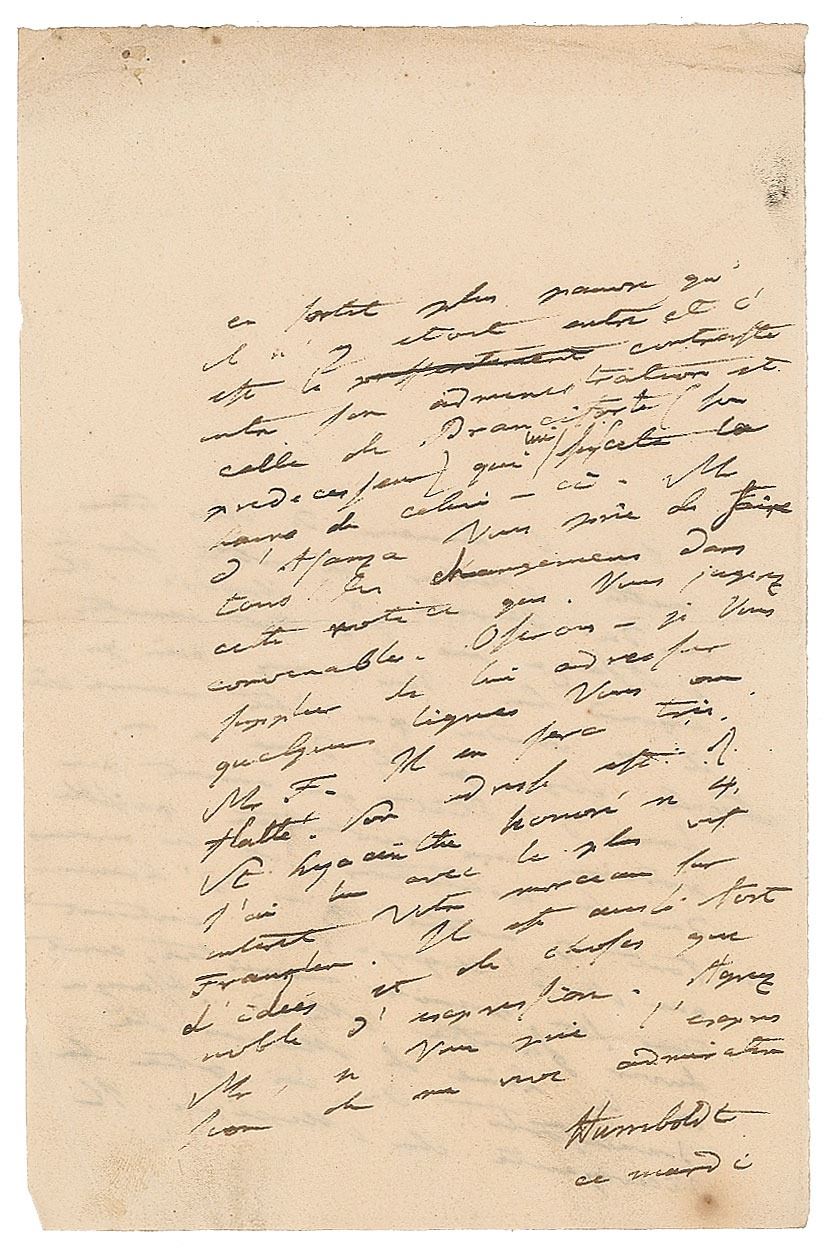 en sortit plus pauvre qu'
il n'y etoit entré et c'
est le contraste
entre son administration et
celle de Branciforte (son
predecesseur) qui lui
de celui-ci. Mr
d'Asanza Vous prie de faire
tous les changemens dans
cette notice que Vous jugerez
convenable. Oserois-je Vous
supplier de lui adresser
quelques lignes Vous ou
Mr F. Il en sera très
flatté. Son adresse est: R.
St. hyacinthe honoré n 4.
J'ai lu avec le plus vif
interet Votre morceau sur
Franklin. Il est aussi fort
d'idées et de choses que
noble d'expression. Agréez
Mr, je Vous prie l'expres
sion de ma vive admiration
Humboldt
ce mardi